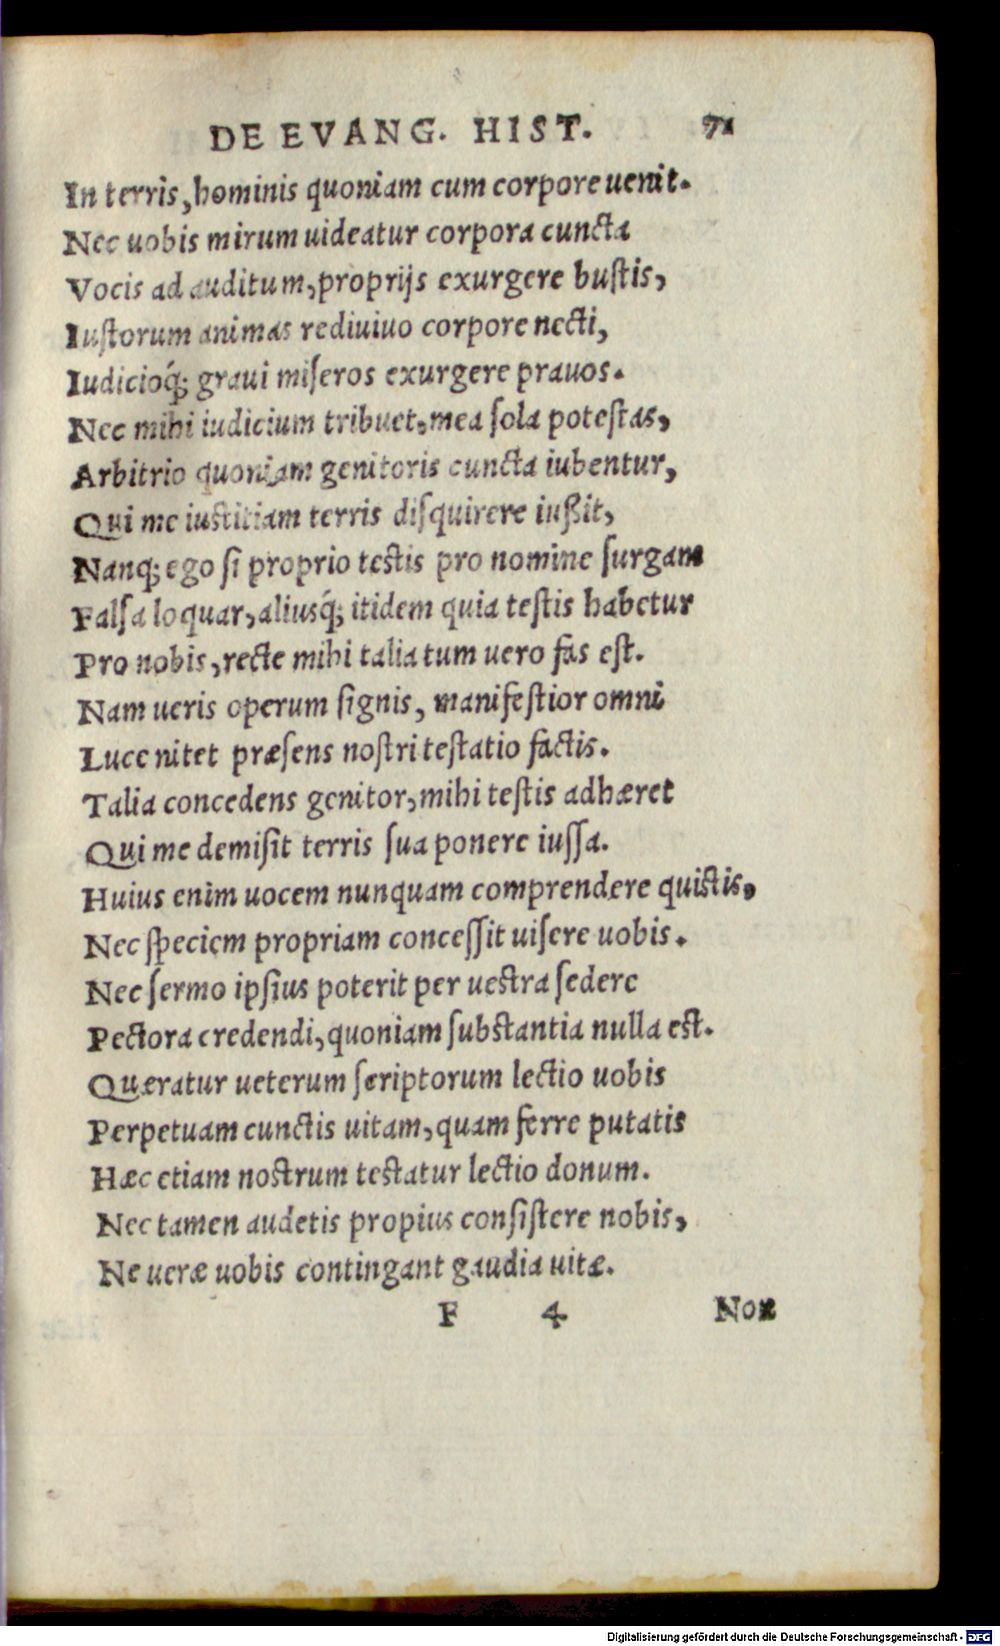 DE EVANG. HIST. 71
In terris, hominis quoniam cum corpore uenit.
Nec uobis mirum uideatur corpora cuncta
Vocis ad auditum, proprijs exurgere bustis,
Iustorum animas rediuiuo corpore necti,
Iudicioq́; graui miseros exurgere prauos.
Nec mihi iudicium tribuet, mea sola potestas,
Arbitrio quoniam genitoris cuncta iubentur,
Qui me iustitiam terris disquirere iußit,
Nanq; ego si proprio testis pro nomine surgam
Falsa loquar, aliusq́; itidem quia testis habetur
Pro nobis, recte mihi talia tum uero fas est.
Nam ueris operum signis, manifestior omni
Luce nitet præsens nostri testatio factis.
Talia concedens genitor, mihi testis adhæret
Qui me demisit terris sua ponere iussa.
Huius enim uocem nunquam comprendere quistis,
Nec speciem propriam concessit uisere uobis.
Nec sermo ipsius poterit per uestra sedere
Pectora credendi, quoniam substantia nulla est.
Quæratur ueterum scriptorum lectio uobis
Perpetuam cunctis uitam, quam ferre putatis
Hæc etiam nostrum testatur lectio donum.
Nec tamen audetis propius consistere nobis,
Ne ueræ uobis contingant gaudia uitæ.
F 4 Non
Digitalisierung gefördert durch die Deutsche Forschungsgemeinschaft - DFG